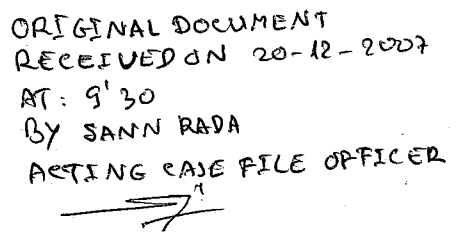 ORIGINAL DOCUMENT
RECEIVED ON 20-12-2007
AT: 9'30
BY SANN RADA
ACTING CASE FILE OFFICER